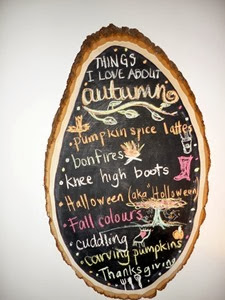 THINGS
I LOVE ABOUT
autumn
• pumpkin spice lattes
• bonfires
• knee high boots
• Halloween (aka "Holloween")
• Fall colours
• cuddling
• Carving pumpkins
• Thanksgiving